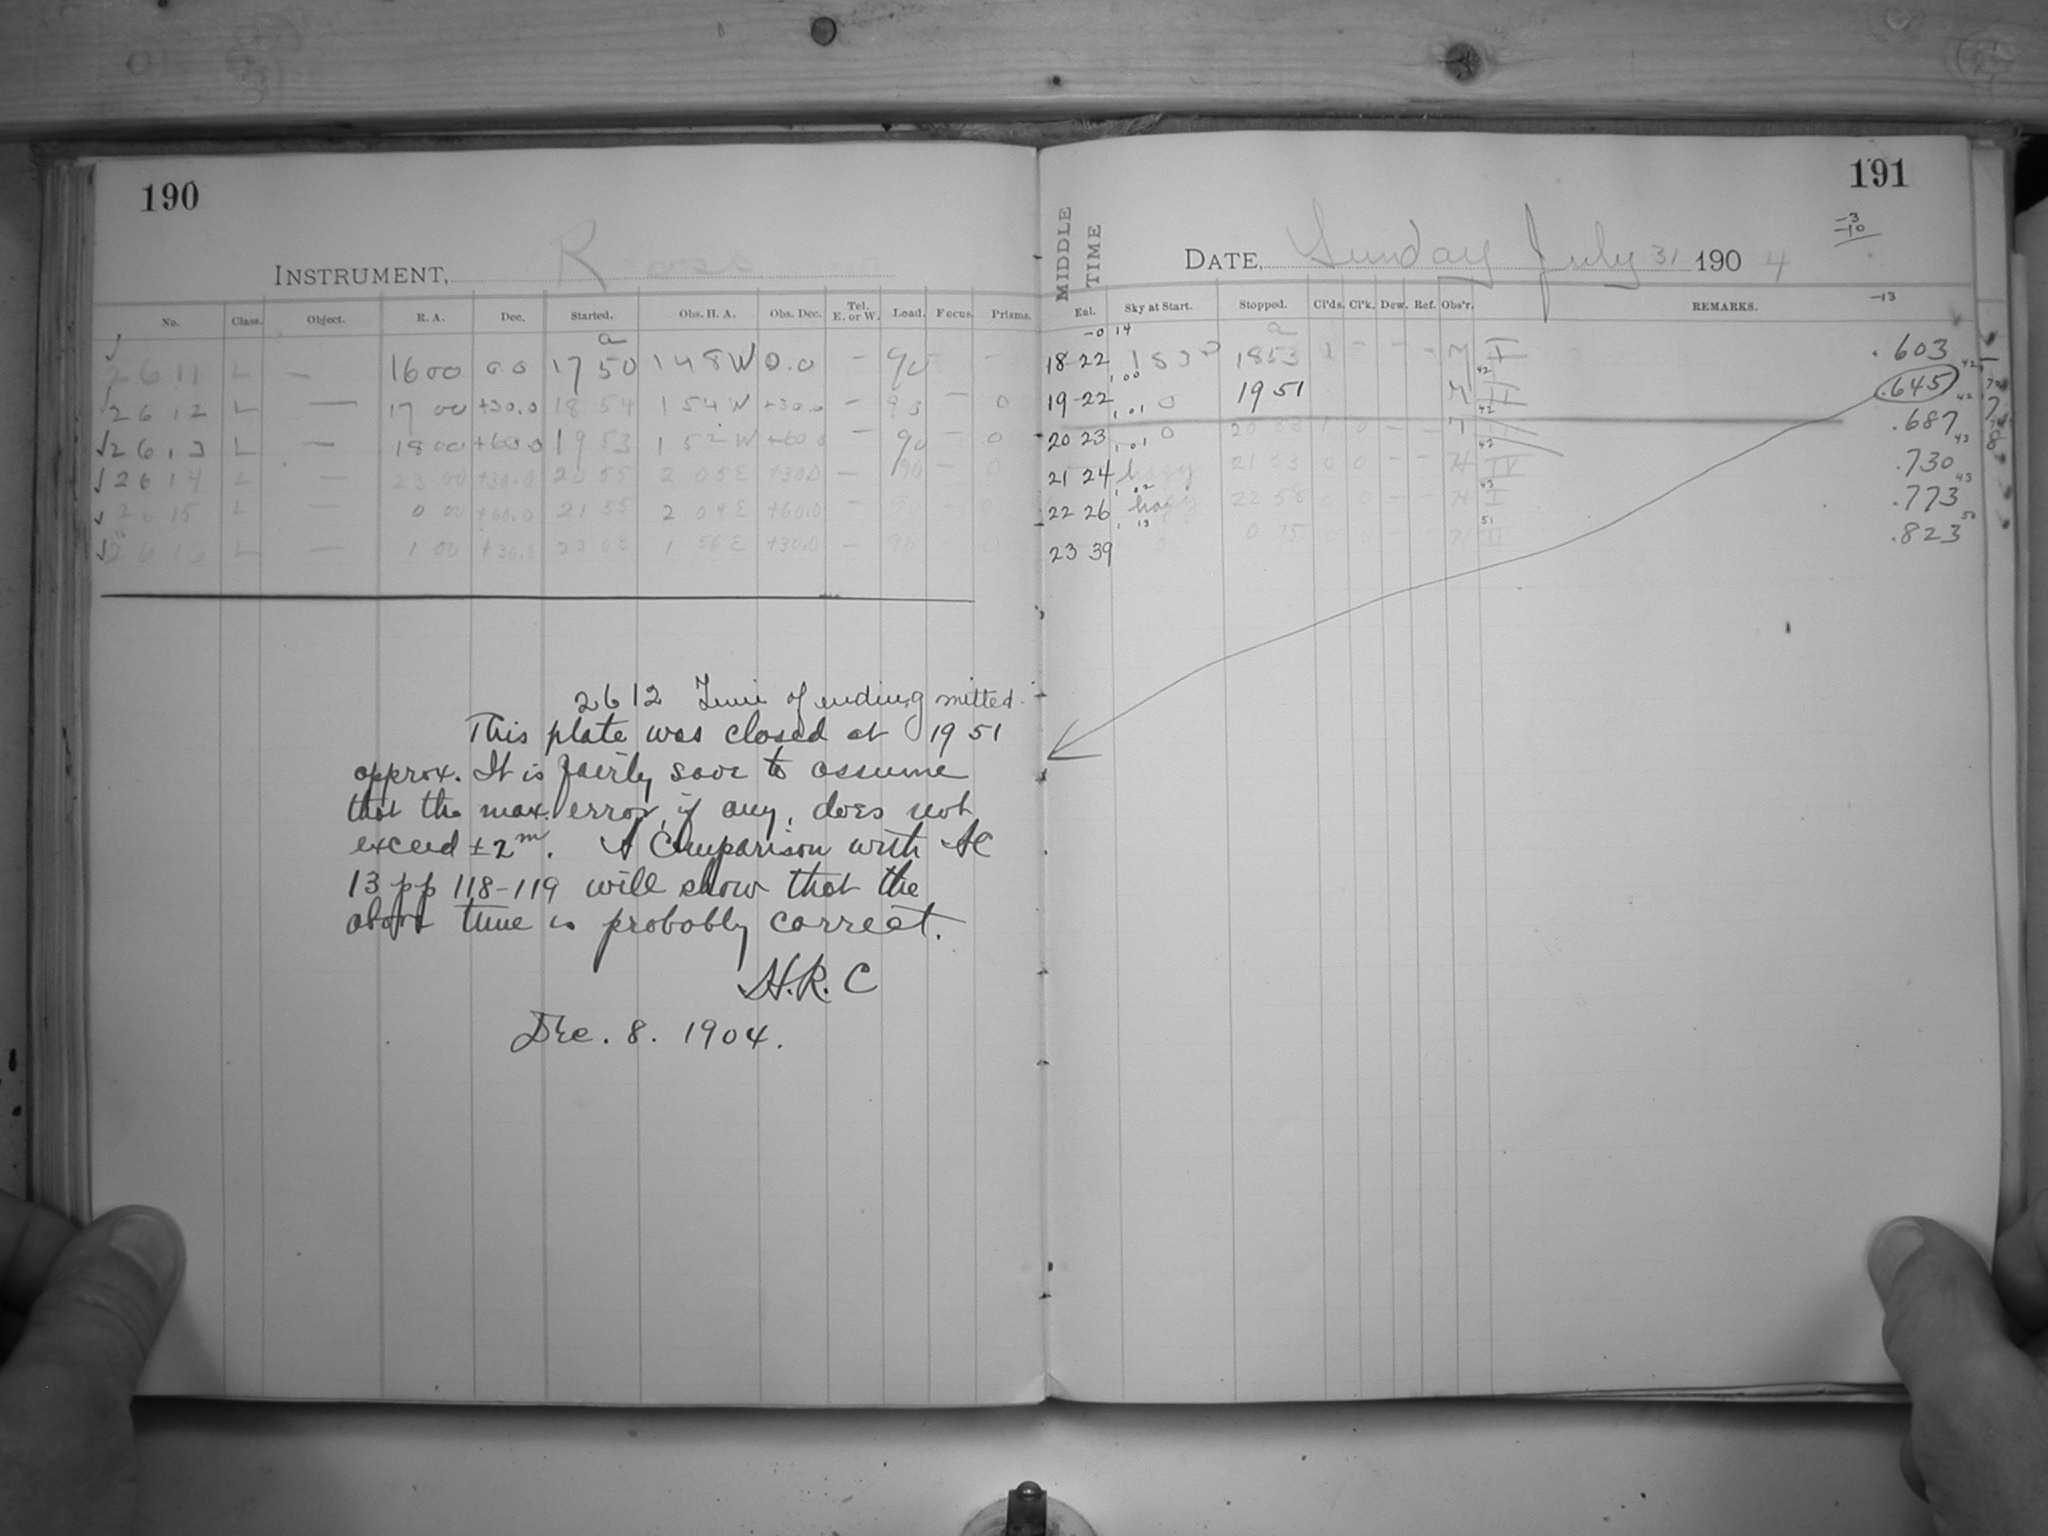 190
INSTRUMENT, Ross
No. Class. Object. R. A. Dec. Started. Obs. H. A. Obs. Dec. Tel. E. or W. Load. Focus. Prisms.
a
2611 L — 16 00 0.0 17 50 1 48 W 0.0 — 90 —
2612 L — 17 00 +30.0 18 54 1 54 W +30.0 — 90 — 0
2613 L — 18 00 +60.0 19 53 1 52 W +60.0 — 90 — 0
2614 L — 23 00 +30.0 20 55 2 05 E +30.0 — 90 — 0
2615 L — 0 00 +60.0 21 55 2 04 E +60.0 — 90 — 0
2616 L — 1 00 +30.0 23 03 1 56 E +30.0 — 90 — 0
2612 Time of ending mitted.
This plate was closed at 19 51
approx. It is fairly save to assume
that the max. error, if any, does not
exceed ±2m. A Comparison with AC
13 pp 118-119 will show that the
above time is probably correct.
H.R.C
Dec. 8. 1904.
191
-3
-10
-13
MIDDLE TIME
DATE, Sunday July 31 1904
Ent. Sky at Start. Stopped. Cl'ds. Cl'k. Dew. Ref. Obs'r. REMARKS.
-0 14
a
18-22 18 53 1 — — — I .603
19-22 0 19 51 II .645
20 23 0 .687
21 24 hazy 21 53 0 0 — — H IV .730
22 26 hazy 22 58 0 0 — — H I .773
23 39 0 0 15 0 0 — H II .823